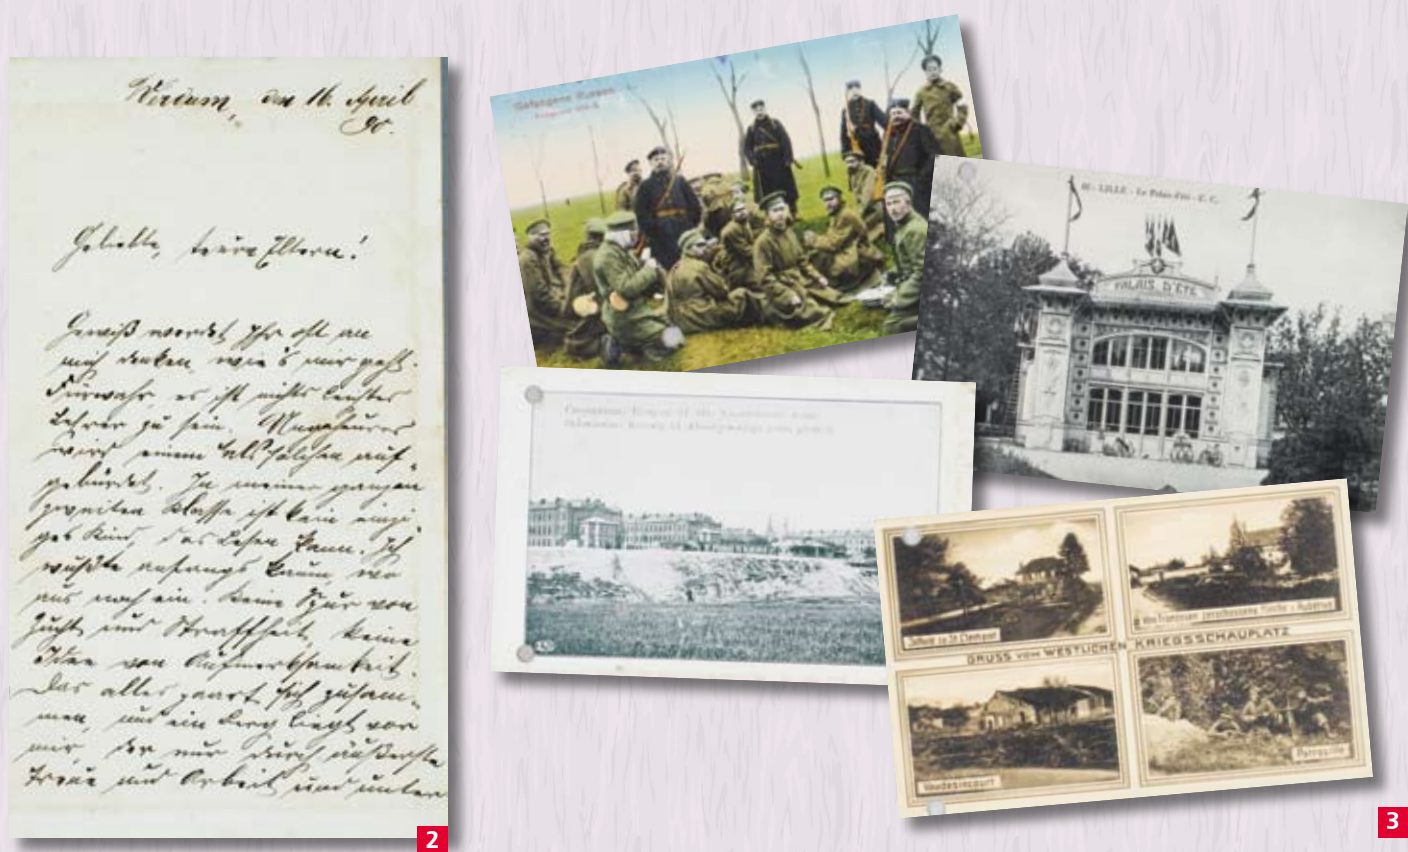 Wirdum, den 16. April
90.
Geliebte, teure Eltern!
Gewiß werdet Ihr oft an
mich denken, wie's mir geht.
Fürwahr, es ist nichts leichtes
Lehrer zu sein. Ungeheures
wird einem als solchen auf-
gebürdet. In meiner ganzen
zweiten Klasse ist kein einzi-
ges Kind, das Lesen kann. Ich
wußte anfangs kaum wo
aus noch ein. Keine Spur von
Zucht und Straffheit, keine
Idee von Aufmerksamkeit.
Das alles paart sich zusam-
men, und ein Berg liegt vor
mir, der nur durch äußerste
Treue und Arbeit und unter
2
Gefangene Russen
LILLE - Le Palais d'été - E. C.
PALAIS D'ÉTÉ
GRUSS VOM WESTLICHEN KRIEGSSCHAUPLATZ
Von Franzosen zerschossene Kirche
Vaudesincourt
Patrouille
3